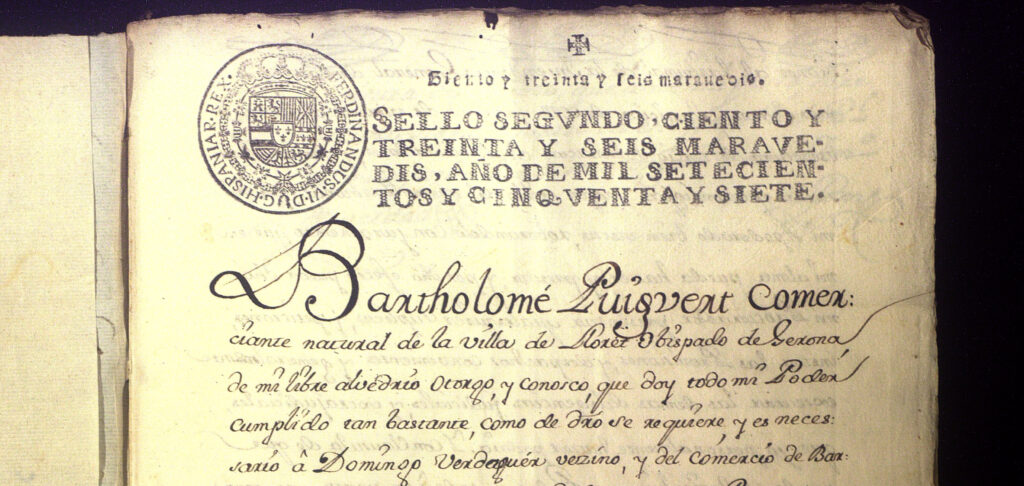 FERDINANDUS·VI·D·G·HISPANIAR·REX·
Siento y treinta y seis maravedis.
SELLO SEGVNDO, CIENTO Y
TREINTA Y SEIS MARAVE-
DIS, AÑO DE MIL SETECIEN-
TOS Y CINQVENTA Y SIETE.
Bartholomé Puigvert Comer:
ciante natural de la villa de Lloret Obispado de Gerona,
de mi libre alvedrio Otorgo, y conosco, que doy todo mi Poder
cumplido tan bastante, como de dro se requiere, y es neces:
sario â Domingo Verdaguér vezino, y del comercio de Bar: